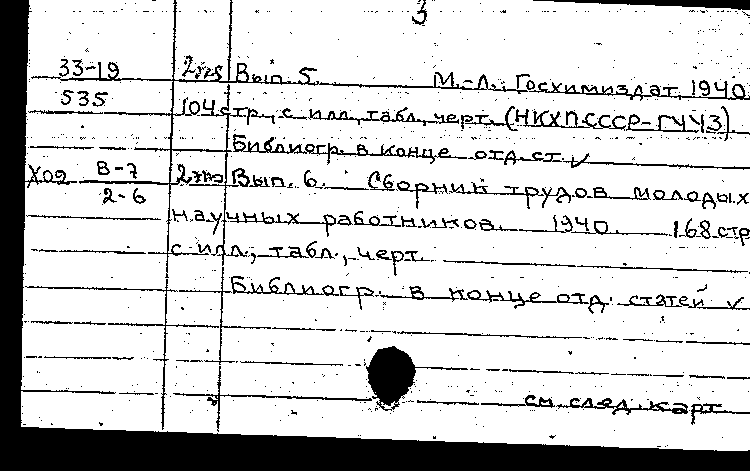 3
33-19 2экз Вып. 5. М.-Л.: Госхимиздат, 1940.
535 104 стр., с илл., табл., черт. (НКХП СССР-ГУУЗ)
Библиогр. в конце отд. ст. ✓
Х02 В-7 2экз Вып. 6. Сборник трудов молодых
2-6
научных работников. 1940. 168 стр
с илл., табл., черт.
Библиогр. в конце отд. статей ✓
см. след. карт